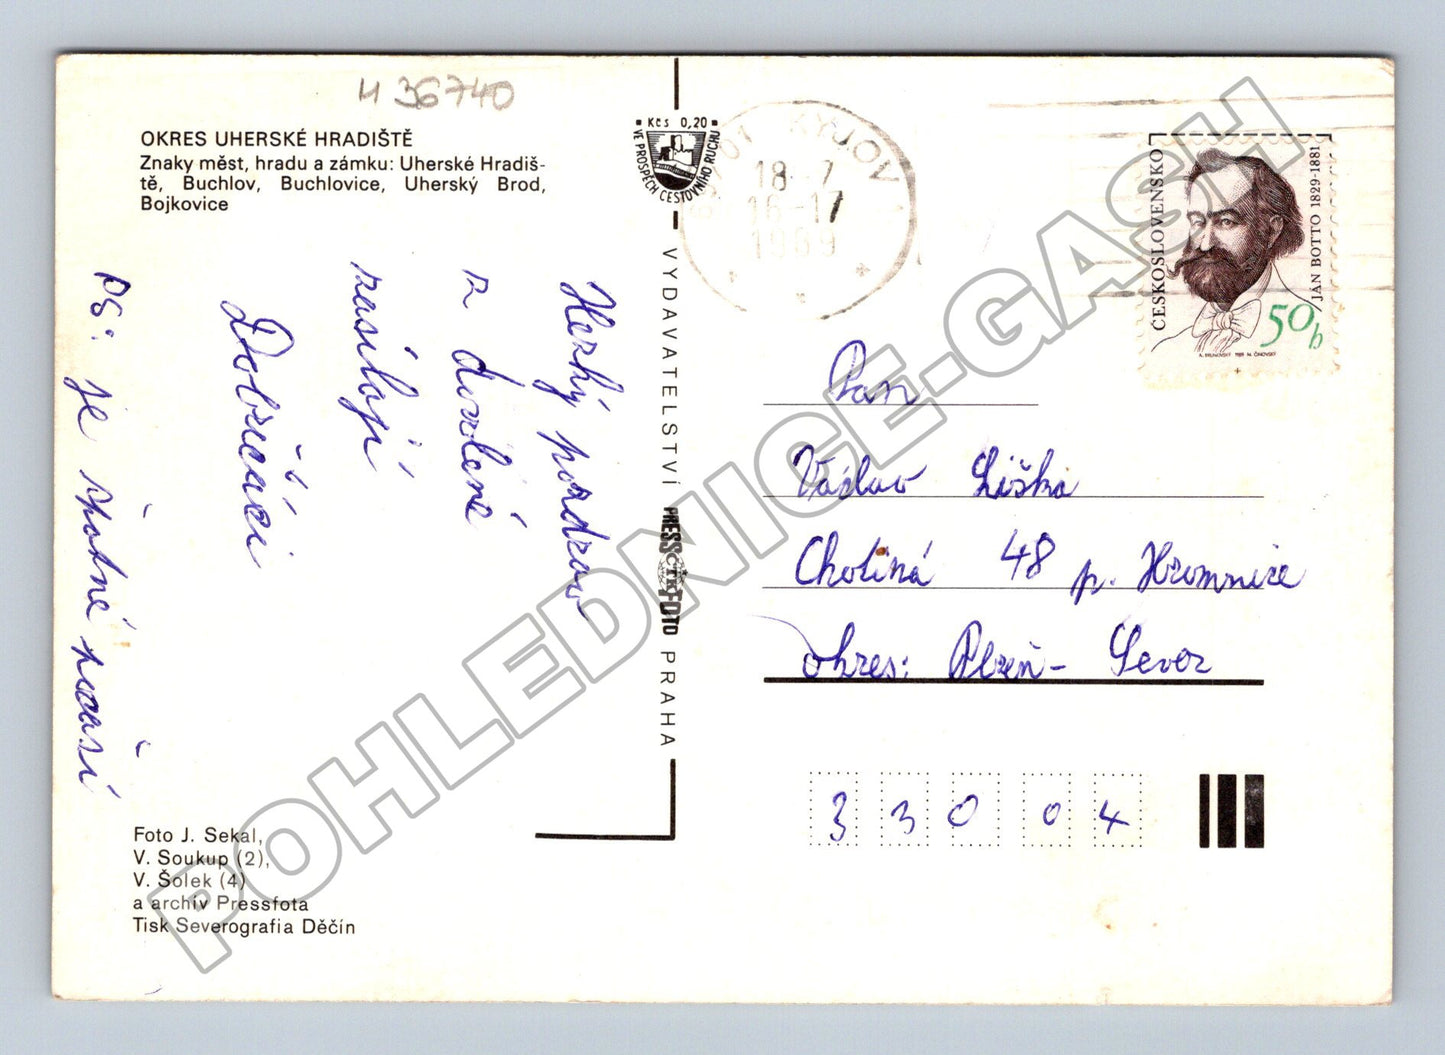 H 36740
OKRES UHERSKÉ HRADIŠTĚ
Znaky měst, hradu a zámku: Uherské Hradiš-
tě, Buchlov, Buchlovice, Uherský Brod,
Bojkovice
Hezký pozdrav
z dovolené
zasílají
Dobzicáci
PS: je špatné počasí
Foto J. Sekal,
V. Soukup (2),
V. Šolek (4)
a archív Pressfota
Tisk Severografia Děčín
Kčs 0,20
VE PROSPĚCH CESTOVNÍHO RUCHU
VYDAVATELSTVÍ PRESSFOTO PRAHA
ČTK
01 KYJOV
18-7
16-17
1989
ČESKOSLOVENSKO
JÁN BOTTO 1829-1881
50h
Pan
Václav Liška
Chotiná 48 p. Hromnice
okres: Plzeň - Sever
330 04
POHLEDNICE-GASH